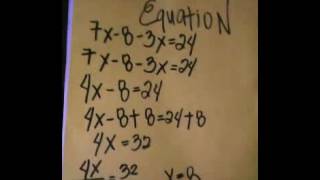 Equation
7x-8-3x=24
7x-8-3x=24
4x-8=24
4x-8+8=24+8
4x=32
4x = 32 x=8